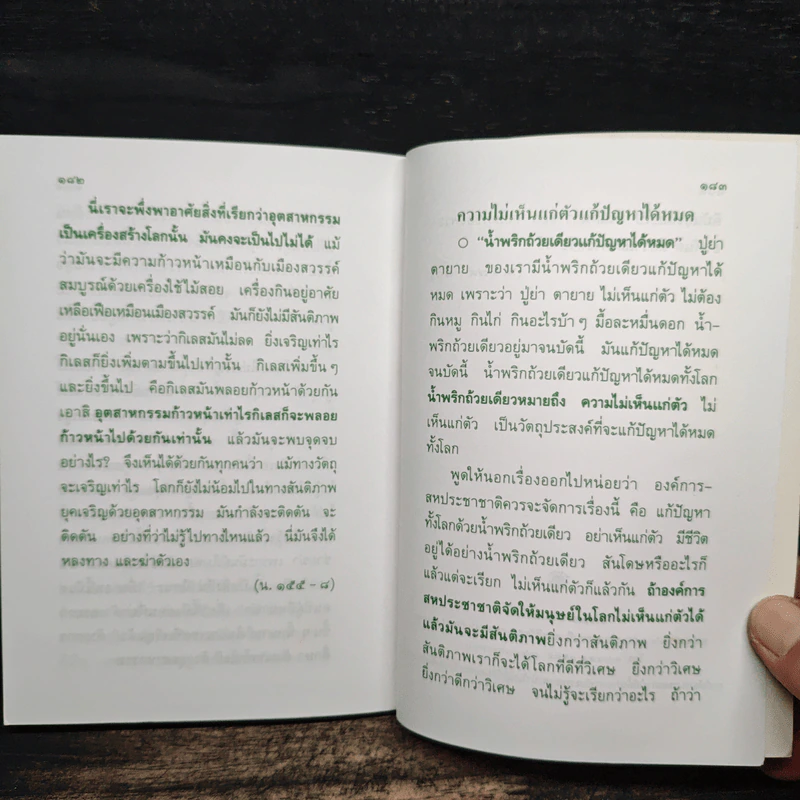 ๑๘๒
นี่เราจะพึ่งพาอาศัยสิ่งที่เรียกว่าอุตสาหกรรม
เป็นเครื่องสร้างโลกนั้น มันคงจะเป็นไปไม่ได้ แม้
ว่ามันจะมีความก้าวหน้าเหมือนกับเมืองสวรรค์
สมบูรณ์ด้วยเครื่องใช้ไม้สอย เครื่องกินอยู่อาศัย
เหลือเฟือเหมือนเมืองสวรรค์ มันก็ยังไม่มีสันติภาพ
อยู่นั่นเอง เพราะว่ากิเลสมันไม่ลด ยิ่งเจริญเท่าไร
กิเลสก็ยิ่งเพิ่มตามขึ้นไปเท่านั้น กิเลสเพิ่มขึ้นๆ
และยิ่งขึ้นไป คือกิเลสมันพลอยก้าวหน้าด้วยกัน
เอาสิ อุตสาหกรรมก้าวหน้าเท่าไรกิเลสก็จะพลอย
ก้าวหน้าไปด้วยกันเท่านั้น แล้วมันจะพบจุดจบ
อย่างไร? จึงเห็นได้ด้วยกันทุกคนว่า แม้ทางวัตถุ
จะเจริญเท่าไร โลกก็ยังไม่น้อมไปในทางสันติภาพ
ยุคเจริญด้วยอุตสาหกรรม มันกำลังจะติดตัน จะ
ติดตัน อย่างที่ว่าไม่รู้ไปทางไหนแล้ว นี่มันจึงได้
หลงทาง และฆ่าตัวเอง
(น. ๑๕๕ - ๘)
๑๘๓
ความไม่เห็นแก่ตัวแก้ปัญหาได้หมด
○ “น้ำพริกถ้วยเดียวแก้ปัญหาได้หมด” ปู่ย่า
ตายาย ของเรามีน้ำพริกถ้วยเดียวแก้ปัญหาได้
หมด เพราะว่า ปู่ย่า ตายาย ไม่เห็นแก่ตัว ไม่ต้อง
กินหมู กินไก่ กินอะไรบ้าๆ มื้อละหมื่นดอก น้ำ-
พริกถ้วยเดียวอยู่มาจนบัดนี้ มันแก้ปัญหาได้หมด
จนบัดนี้ น้ำพริกถ้วยเดียวแก้ปัญหาได้หมดทั้งโลก
น้ำพริกถ้วยเดียวหมายถึง ความไม่เห็นแก่ตัว ไม่
เห็นแก่ตัว เป็นวัตถุประสงค์ที่จะแก้ปัญหาได้หมด
ทั้งโลก
พูดให้นอกเรื่องออกไปหน่อยว่า องค์การ-
สหประชาชาติควรจะจัดการเรื่องนี้ คือ แก้ปัญหา
ทั้งโลกด้วยน้ำพริกถ้วยเดียว อย่าเห็นแก่ตัว มีชีวิต
อยู่ได้อย่างน้ำพริกถ้วยเดียว สันโดษหรืออะไรก็
แล้วแต่จะเรียก ไม่เห็นแก่ตัวก็แล้วกัน ถ้าองค์การ
สหประชาชาติจัดให้มนุษย์ในโลกไม่เห็นแก่ตัวได้
แล้วมันจะมีสันติภาพยิ่งกว่าสันติภาพ ยิ่งกว่า
สันติภาพเราก็จะได้โลกที่ดีที่วิเศษ ยิ่งกว่าวิเศษ
ยิ่งกว่าดีกว่าวิเศษ จนไม่รู้จะเรียกว่าอะไร ถ้าว่า